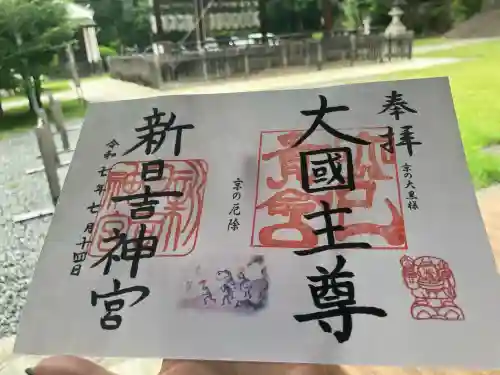 奉拝
京の大黒様
大國主尊
京の厄除
新日吉神宮
令和七年七月十四日